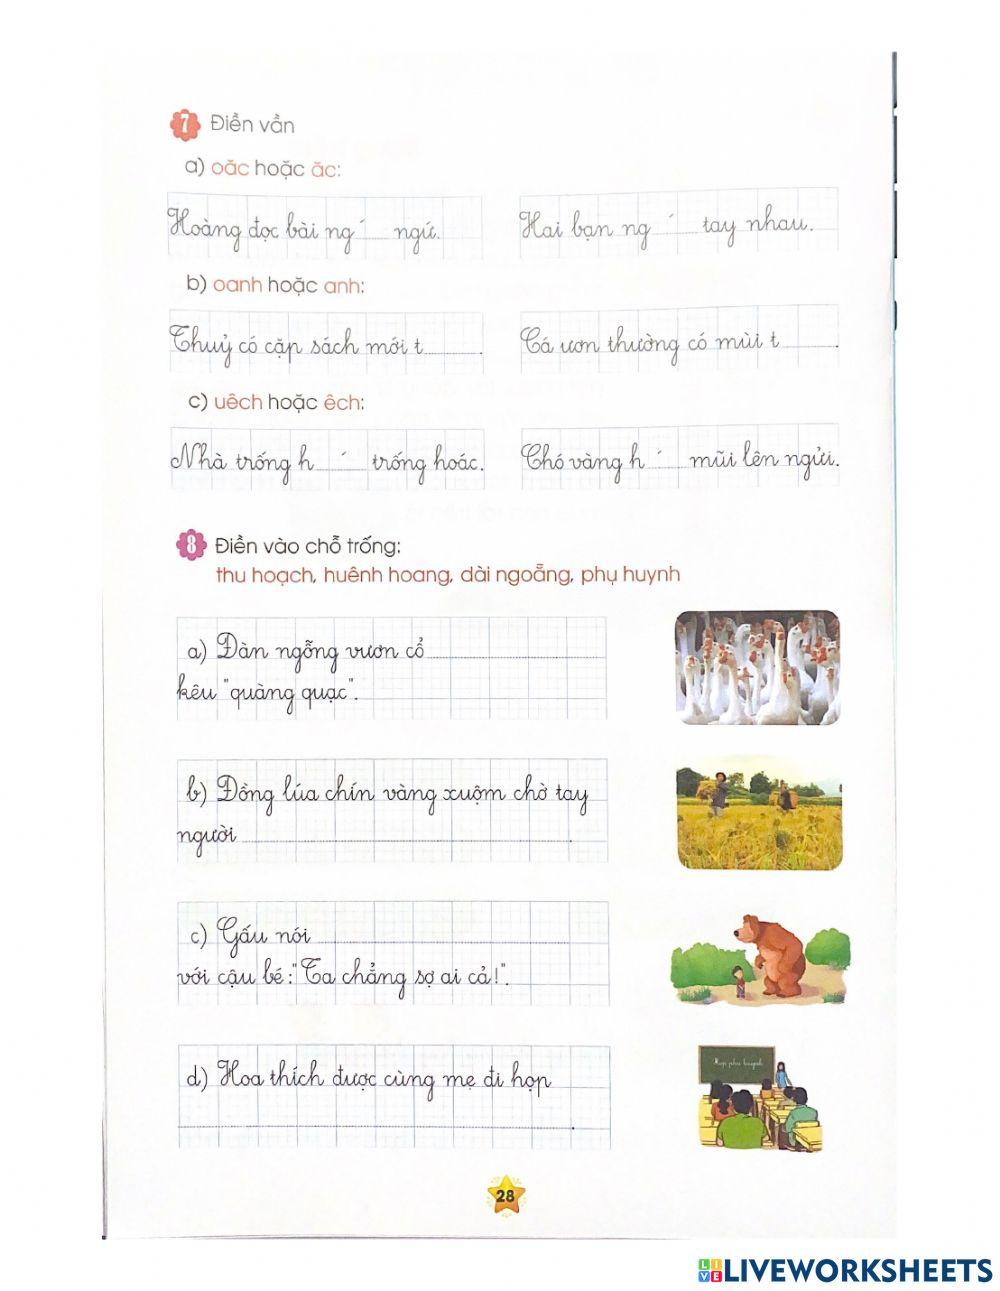 7 Điền vần
a) oăc hoặc ăc:
Hoàng đọc bài ng ́ ___ ngứ.
Hai bạn ng ́ ___ tay nhau.
b) oanh hoặc anh:
Thuỷ có cặp sách mới t........
Cá ươn thường có mùi t........
c) uêch hoặc êch:
Nhà trống h ́ ___ trống hoác.
Chó vàng h ́ ___ mũi lên ngửi.
8 Điền vào chỗ trống:
thu hoạch, huênh hoang, dài ngoẵng, phụ huynh
a) Đàn ngỗng vươn cổ ........
kêu "quàng quạc".
b) Đồng lúa chín vàng xuộm chờ tay
người ........
c) Gấu nói ........
với cậu bé: "Ta chẳng sợ ai cả!".
d) Hoa thích được cùng mẹ đi họp
........
Họp phụ huynh
28
LIVEWORKSHEETS